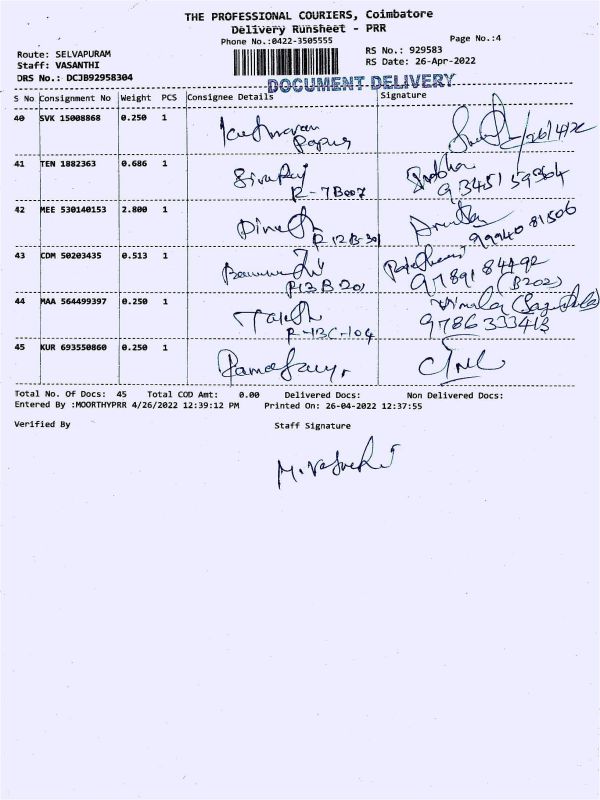 THE PROFESSIONAL COURIERS, Coimbatore
Delivery Runsheet - PRR
Phone No.:0422-3505555
Page No.:4
Route: SELVAPURAM
Staff: VASANTHI
DRS No.: DCJB92958304
RS No.: 929583
RS Date: 26-Apr-2022
DOCUMENT DELIVERY
S No Consignment No Weight PCS Consignee Details Signature
40 SVK 15008868 0.250 1
Papers
26/4/22
41 TEN 1882363 0.686 1 Sivaraj Prabha
R-7B007 93451 59364
42 MEE 530140153 2.800 1 Dinesh
R 12B-301 99940 81506
43 CDM 50203435 0.513 1
R13 B 201 97891 84492
(B202)
44 MAA 564499397 0.250 1 Vimala
R-13C-104 9786333413
45 KUR 693550860 0.250 1
Total No. Of Docs: 45 Total COD Amt: 0.00 Delivered Docs: Non Delivered Docs:
Entered By :MOORTHYPRR 4/26/2022 12:39:12 PM Printed On: 26-04-2022 12:37:55
Verified By Staff Signature